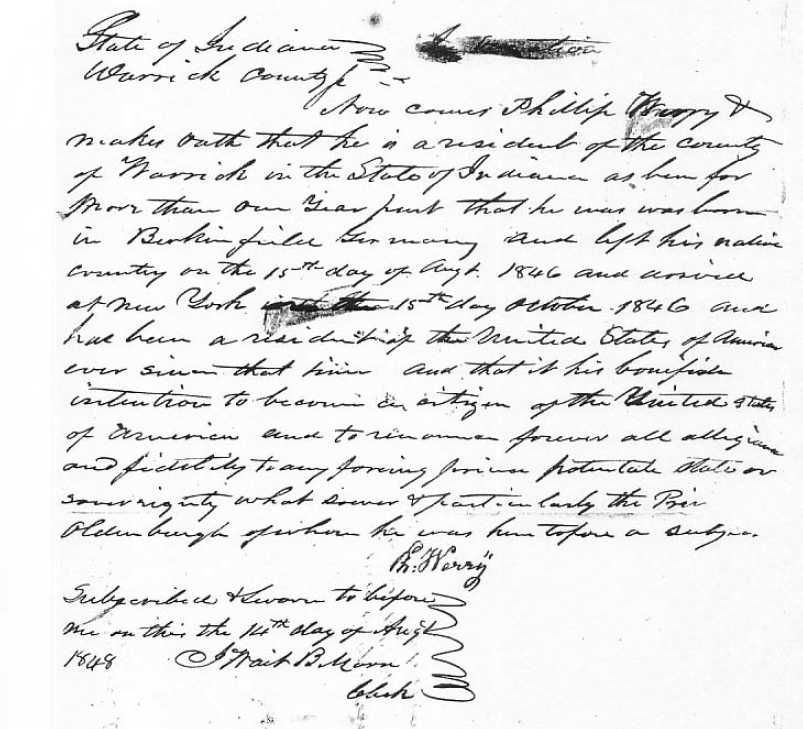 State of Indiana
Warrick County
Now comes Phillip Werry &
makes oath that he is a resident of the county
of Warrick in the State of Indiana as ben for
More than one Year past that he was was born
in Berkinfield Germany and left his native
country on the 15th day of Augt. 1846 and arrived
at New York 15th day October 1846 and
has been a resident of the United States of America
ever since that time and that it his bonefide
intention to become a citizen of the United States
of America and to renounce forever all allegiance
and fidelity to any foreing prince potentate state or
sovereignty what soever & particularly the
Oldenburgh of whom he was heretofore a
Ph. Werry
Subscribed & Sworn to before
me on this the 14th day of Augt
1848
Clerk